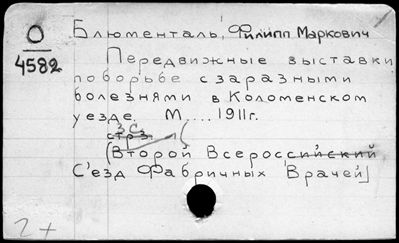 О
4582
Блюменталь, Филипп Маркович
Передвижные выставки
по борьбе с заразными
болезнями в Коломенском
уезде. М.... 1911г.
3 С.
стр 3.
(Второй Всероссийский
С'езд Фабричных Врачей)
2+